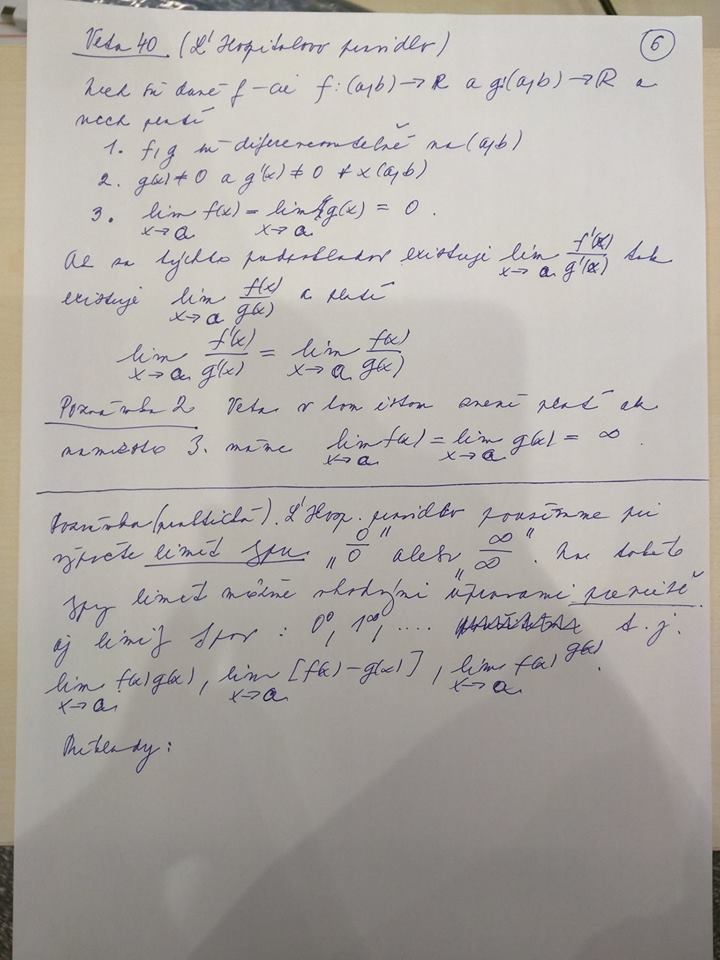 Veta 40 (L'Hospitalovo pravidlo) 6
Nech sú dané f-cie f:(a,b)→R a g:(a,b)→R a
nech platí
1. f,g sú diferencovateľné na (a,b)
2. g(x)≠0 a g'(x)≠0 ∀x(a,b)
3. lim x→a f(x) = lim x→a g(x) = 0.
Ak za týchto predpokladov existuje lim x→a f'(x)/g'(x) tak
existuje lim x→a f(x)/g(x) a platí
lim x→a f'(x)/g'(x) = lim x→a f(x)/g(x)
Poznámka 2 Veta v tom istom znení platí ak
namiesto 3. máme lim x→a f(x) = lim x→a g(x) = ∞.
Poznámka (praktická). L'Hosp. pravidlo použijeme pri
výpočte limít typu „0/0" alebo „∞/∞". Na tieto
typy limít možno vhodnými úpravami previesť
aj limity typov: 0⁰, 1^∞, .... t.j.
lim x→a f(x)g(x), lim x→a [f(x)-g(x)], lim x→a f(x)^g(x).
Príklady: